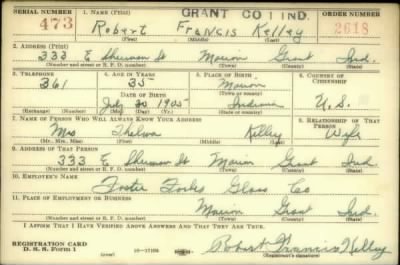 GRANT CO IND.
SERIAL NUMBER 1. NAME (Print) ORDER NUMBER
473 Robert Francis Kelley 2618
(First) (Middle) (Last)
2. ADDRESS (Print)
333 E Sherman St Marion Grant Ind.
(Number and street or R. F. D. number) (Town) (County) (State)
3. TELEPHONE 4. AGE IN YEARS 5. PLACE OF BIRTH 6. COUNTRY OF CITIZENSHIP
361 35 Marion
DATE OF BIRTH (Town or county)
July 30 1905 Indiana U.S.
(Exchange) (Number) (Mo.) (Day) (Yr.) (State or country)
7. NAME OF PERSON WHO WILL ALWAYS KNOW YOUR ADDRESS 8. RELATIONSHIP OF THAT PERSON
Mrs Thelma Kelley Wife
(Mr., Mrs., Miss) (First) (Middle) (Last)
9. ADDRESS OF THAT PERSON
333 E Sherman St Marion Grant Ind.
(Number and street or R. F. D. number) (Town) (County) (State)
10. EMPLOYER'S NAME
Foster Forbes Glass Co
11. PLACE OF EMPLOYMENT OR BUSINESS
Marion Grant Ind.
(Number and street or R. F. D. number) (Town) (County) (State)
I AFFIRM THAT I HAVE VERIFIED ABOVE ANSWERS AND THAT THEY ARE TRUE.
REGISTRATION CARD
D. S. S. Form 1 (over) Robert Francis Kelley
(Registrant's signature)